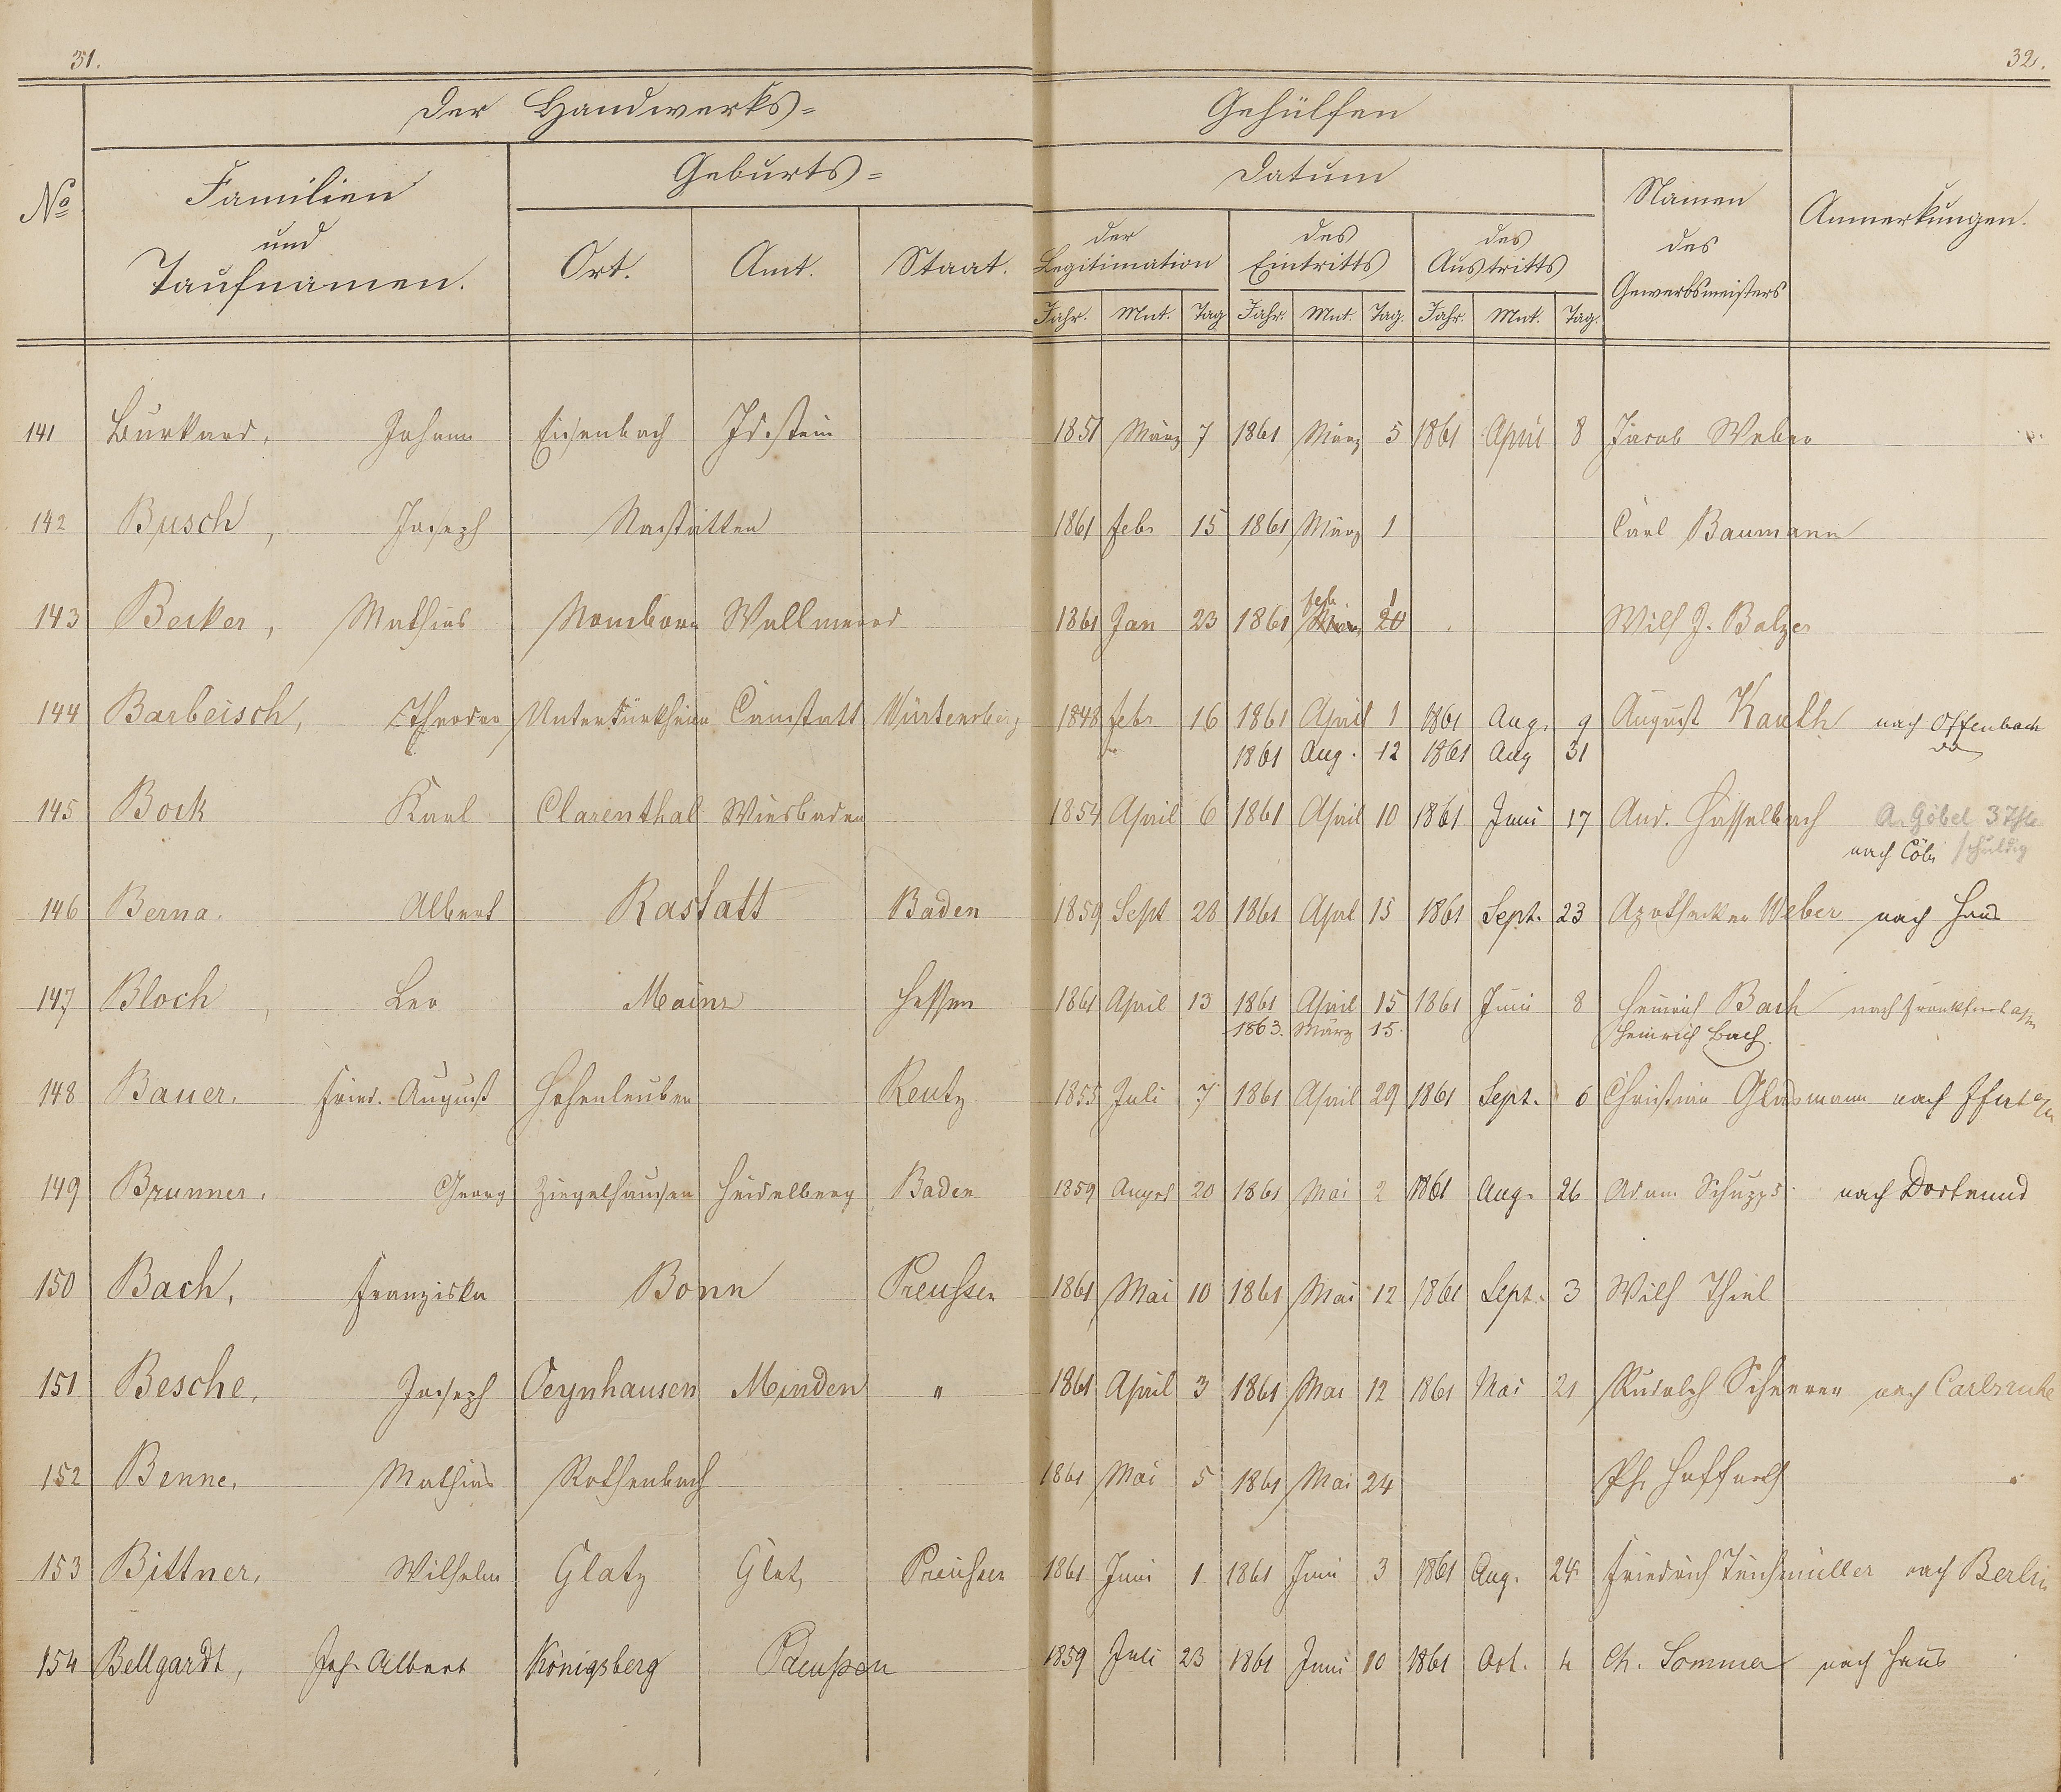 31.
32.
Der Handwerks=
Gehülfen
No
Familien
und
Taufnamen.
Geburts=
Ort. Amt. Staat.
Datum
der Legitimation
des Eintritts
des Austritts
Jahr. Mnt. Tag Jahr. Mnt. Tag. Jahr. Mnt. Tag.
Namen
des
Gewerbsmeisters
Anmerkungen.
141 Burkard, Johann Eisenbach Idstein 1851 März 7 1861 März 5 1861 April 8 Jacob Weber
142 Busch, Joseph Nastätten 1861 Febr 15 1861 März 1 Carl Baumann
143 Becker, Mathias Nomborn Wallmerod 1861 Jan 23 1861 Feb 1 Wilh J. Balzer
144 Barbeisch, Theodor Untertürkheim Canstatt Würtemberg 1848 Febr 16 1861 April 1 1861 Aug. 9 August Kauth nach Offenbach
1861 Aug. 12 1861 Aug 31 do
145 Bock Karl Clarenthal Wiesbaden 1854 April 6 1861 April 10 1861 Juni 17 And. Hasselbach A. Göbel 3 Thlr
nach Cöln schuldig
146 Berna. Albert Rastatt Baden 1859 Sept 28 1861 Aprl 15 1861 Sept. 23 Apotheker Weber nach Haus
147 Bloch, Leo Mainz Hessen 1861 April 13 1861 April 15 1861 Juni 8 Heinrich Bach nach Frankfurt a/m
1863. März 15. Heinrich Bach.
148 Bauer. Fried. August Hohenleuben Reutz 1855 Juli 7 1861 April 29 1861 Sept. 6 Christian Glasmann nach Ffurt a/m
149 Brunner. Georg Ziegelhausen Heidelberg Baden 1859 August 20 1861 Mai 2 1861 Aug. 26 Adam Schupp nach Dortmund
150 Bach, Franziska Bonn Preussen 1861 Mai 10 1861 Mai 12 1861 Sept. 3 Wilh Thiel
151 Besche, Joseph Oeynhausen Minden " 1861 April 3 1861 Mai 12 1861 Mai 21 Rudolph Scheerer nach Carlsruhe
152 Benne, Mathias Rothenbach 1861 Mai 5 1861 Mai 24 Ph.
153 Bittner, Wilhelm Glatz Glatz Preussen 1861 Juni 1 1861 Juni 3 1861 Aug. 24 Friedrich Teichmüller nach Berlin
154 Bellgardt, Joh. Albert Königsberg Preussen 1859 Juli 23 1861 Juni 10 1861 Oct. 4 Ch. Sommer nach Haus